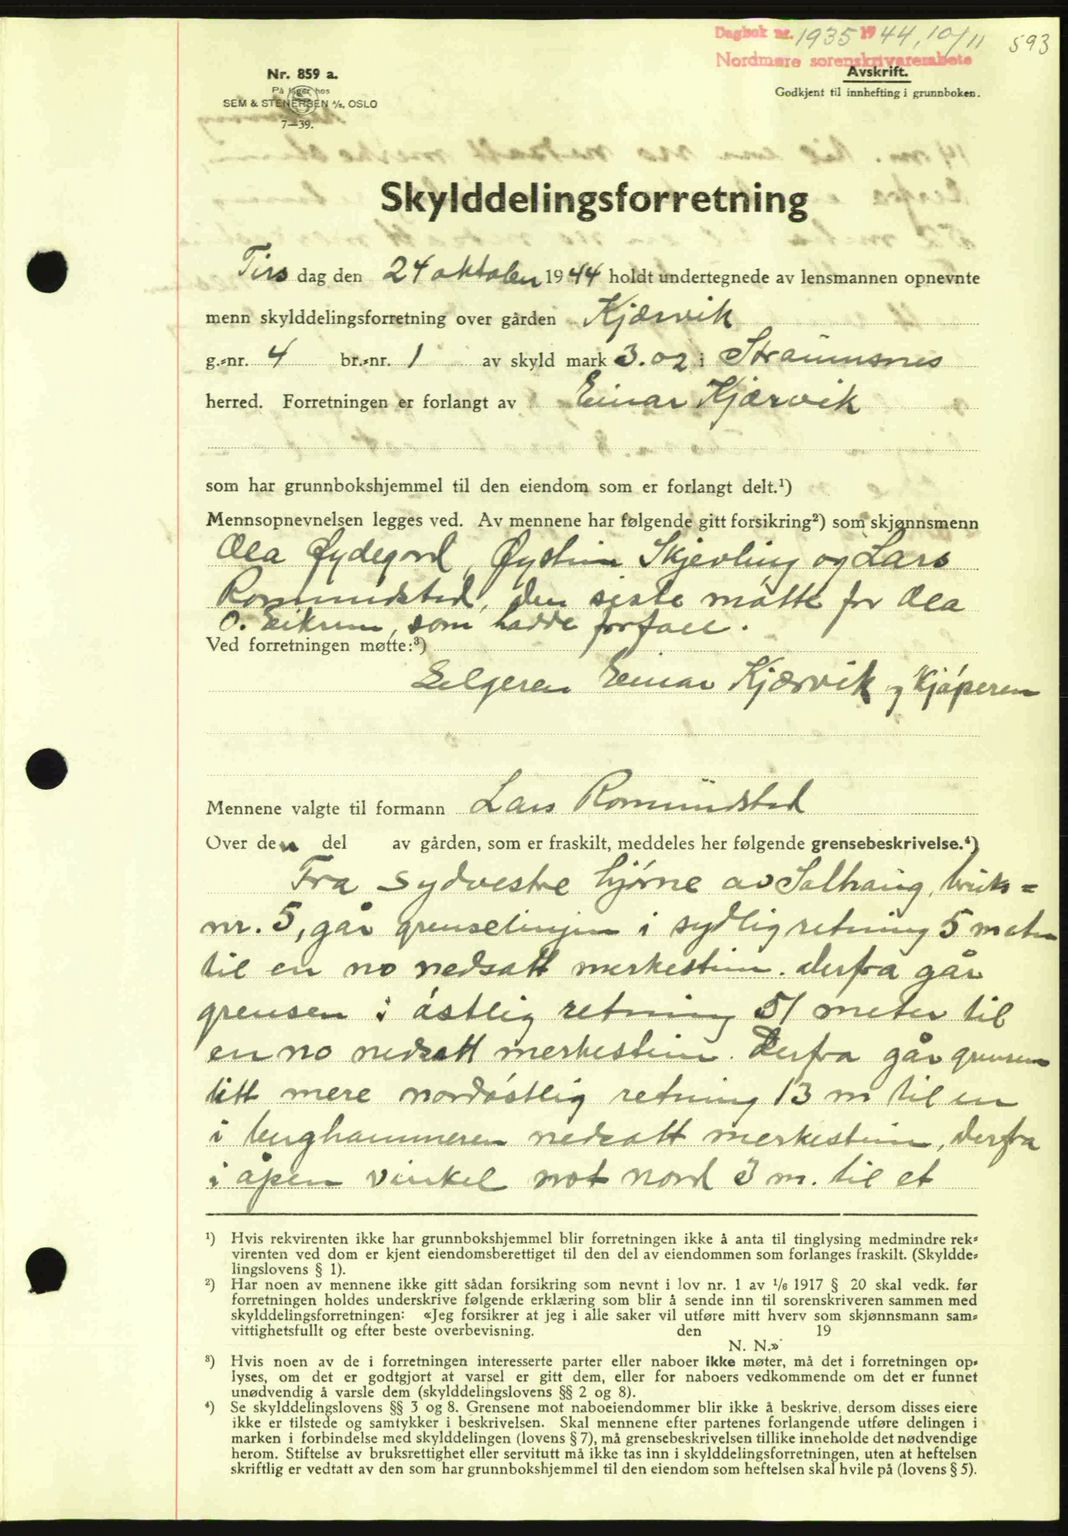 Dagbok nr. 1935 1944, 10/11 593
Nordmøre sorenskrivarembete
Nr. 859 a.
På lager hos
SEM & STENERSEN A/S, OSLO
7—39.
Avskrift.
Godkjent til innhefting i grunnboken.
Skylddelingsforretning
Tirs dag den 24 oktober 1944 holdt undertegnede av lensmannen opnevnte
menn skylddelingsforretning over gården Kjærvik
g.-nr. 4 br.-nr. 1 av skyld mark 3.02 i Straumsnes
herred. Forretningen er forlangt av Einar Kjærvik
som har grunnbokshjemmel til den eiendom som er forlangt delt.¹)
Mennsopnevnelsen legges ved. Av mennene har følgende gitt forsikring²) som skjønnsmenn
Ola Øydegard, Øystein Skjevling og Lars
Romundstad, den siste møtte for Ola
O. Eikrem, som hadde forfall.
Ved forretningen møtte:³)
Selgeren Einar Kjærvik og Kjøperen
Mennene valgte til formann Lars Romundstad
Over den del av gården, som er fraskilt, meddeles her følgende grensebeskrivelse.⁴)
Fra sydvestre hjørne av Solhaug, bruks-
nr. 5, går grenselinjen i sydlig retning 5 meter
til en no nedsatt merkestein. derfra går
grensen i østlig retning 51 meter til
en no nedsatt merkestein. Derfra går grensen
litt mere nordøstlig retning 13 m til en
i berghammeren nedsatt merkestein, derfra
i åpen vinkel mot nord 3 m. til et
¹) Hvis rekvirenten ikke har grunnbokshjemmel blir forretningen ikke å anta til tinglysing medmindre rek-
virenten ved dom er kjent eiendomsberettiget til den del av eiendommen som forlanges fraskilt. (Skyldde-
lingslovens § 1).
²) Har noen av mennene ikke gitt sådan forsikring som nevnt i lov nr. 1 av 1/6 1917 § 20 skal vedk. før
forretningen holdes underskrive følgende erklæring som blir å sende inn til sorenskriveren sammen med
skylddelingsforretningen: «Jeg forsikrer at jeg i alle saker vil utføre mitt hverv som skjønnsmann sam-
vittighetsfullt og efter beste overbevisning. den 19
N. N.»
³) Hvis noen av de i forretningen interesserte parter eller naboer ikke møter, må det i forretningen op-
lyses, om det er godtgjort at varsel er gitt dem, eller for naboers vedkommende om det er funnet
unødvendig å varsle dem (skylddelingslovens §§ 2 og 8).
⁴) Se skylddelingslovens §§ 3 og 8. Grensene mot naboeiendommer blir ikke å beskrive, dersom disses eiere
ikke er tilstede og samtykker i beskrivelsen. Skal mennene efter partenes forlangende utføre delingen i
marken i forbindelse med skylddelingen (lovens § 7), må grensebeskrivelsen tillike inneholde det nødvendige
herom. Stiftelse av bruksrettighet eller servitutt må ikke tas inn i skylddelingsforretningen, uten at heftelsen
skriftlig er vedtatt av den som har grunnbokshjemmel til den eiendom som heftelsen skal hvile på (lovens § 5).